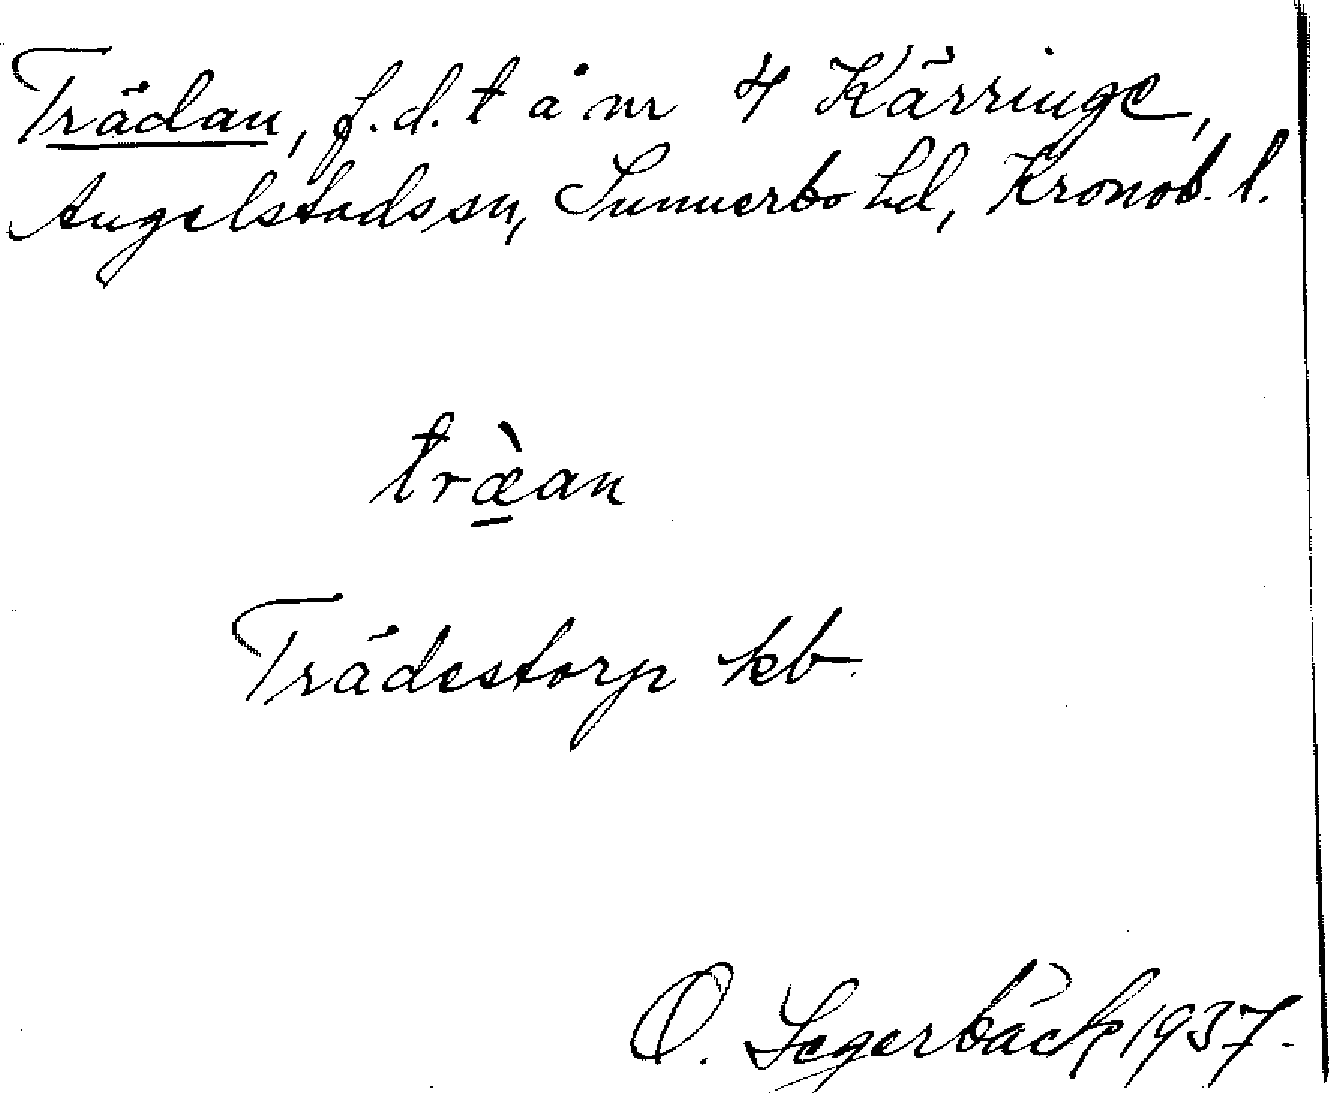 Trädan, f.d. t å nr 4 Kärringe,
Angelstads sn, Sunnerbo hd, Kronob. l.
træ̀an
Trädestorp kb
O. Segerbäck 1937.